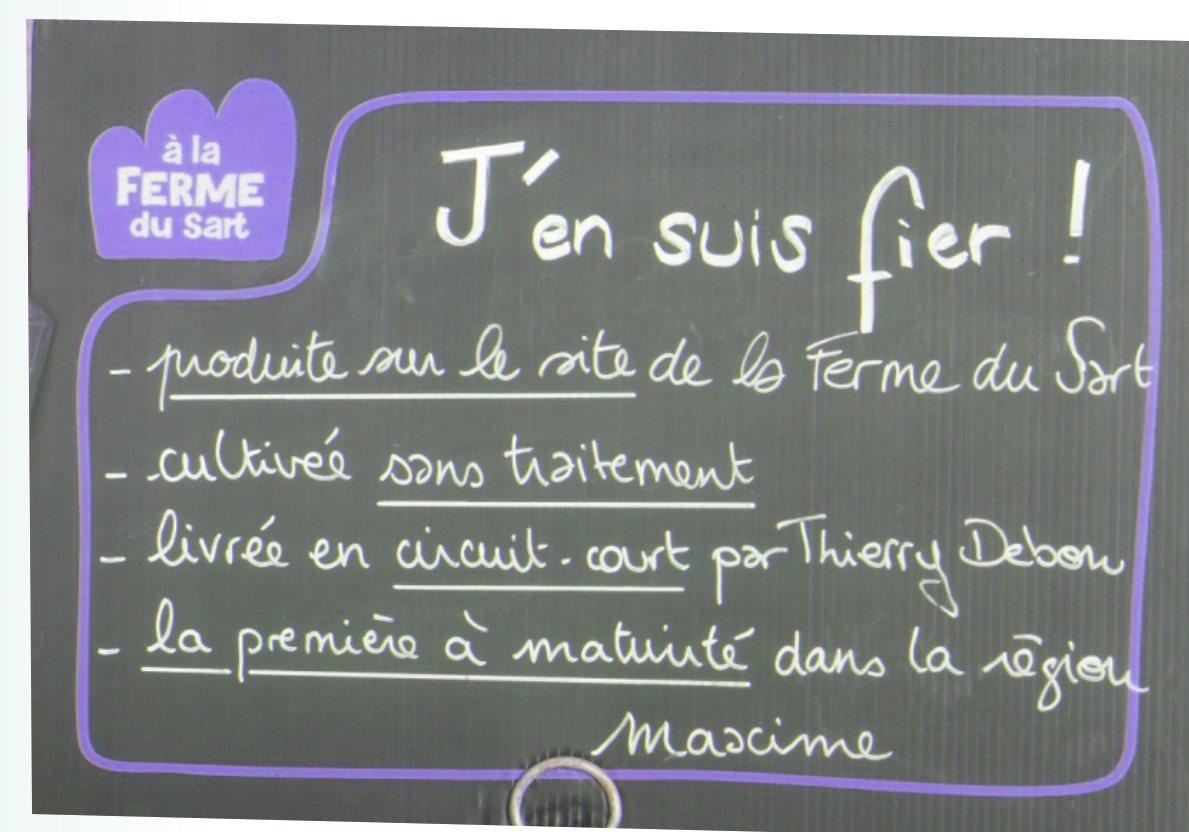 à la
FERME
du Sart
J'en suis fier !
- produite sur le site de la Ferme du Sart
- cultivée sans traitement
- livrée en circuit-court par Thierry Debon
- la première à maturité dans la région
Maxime